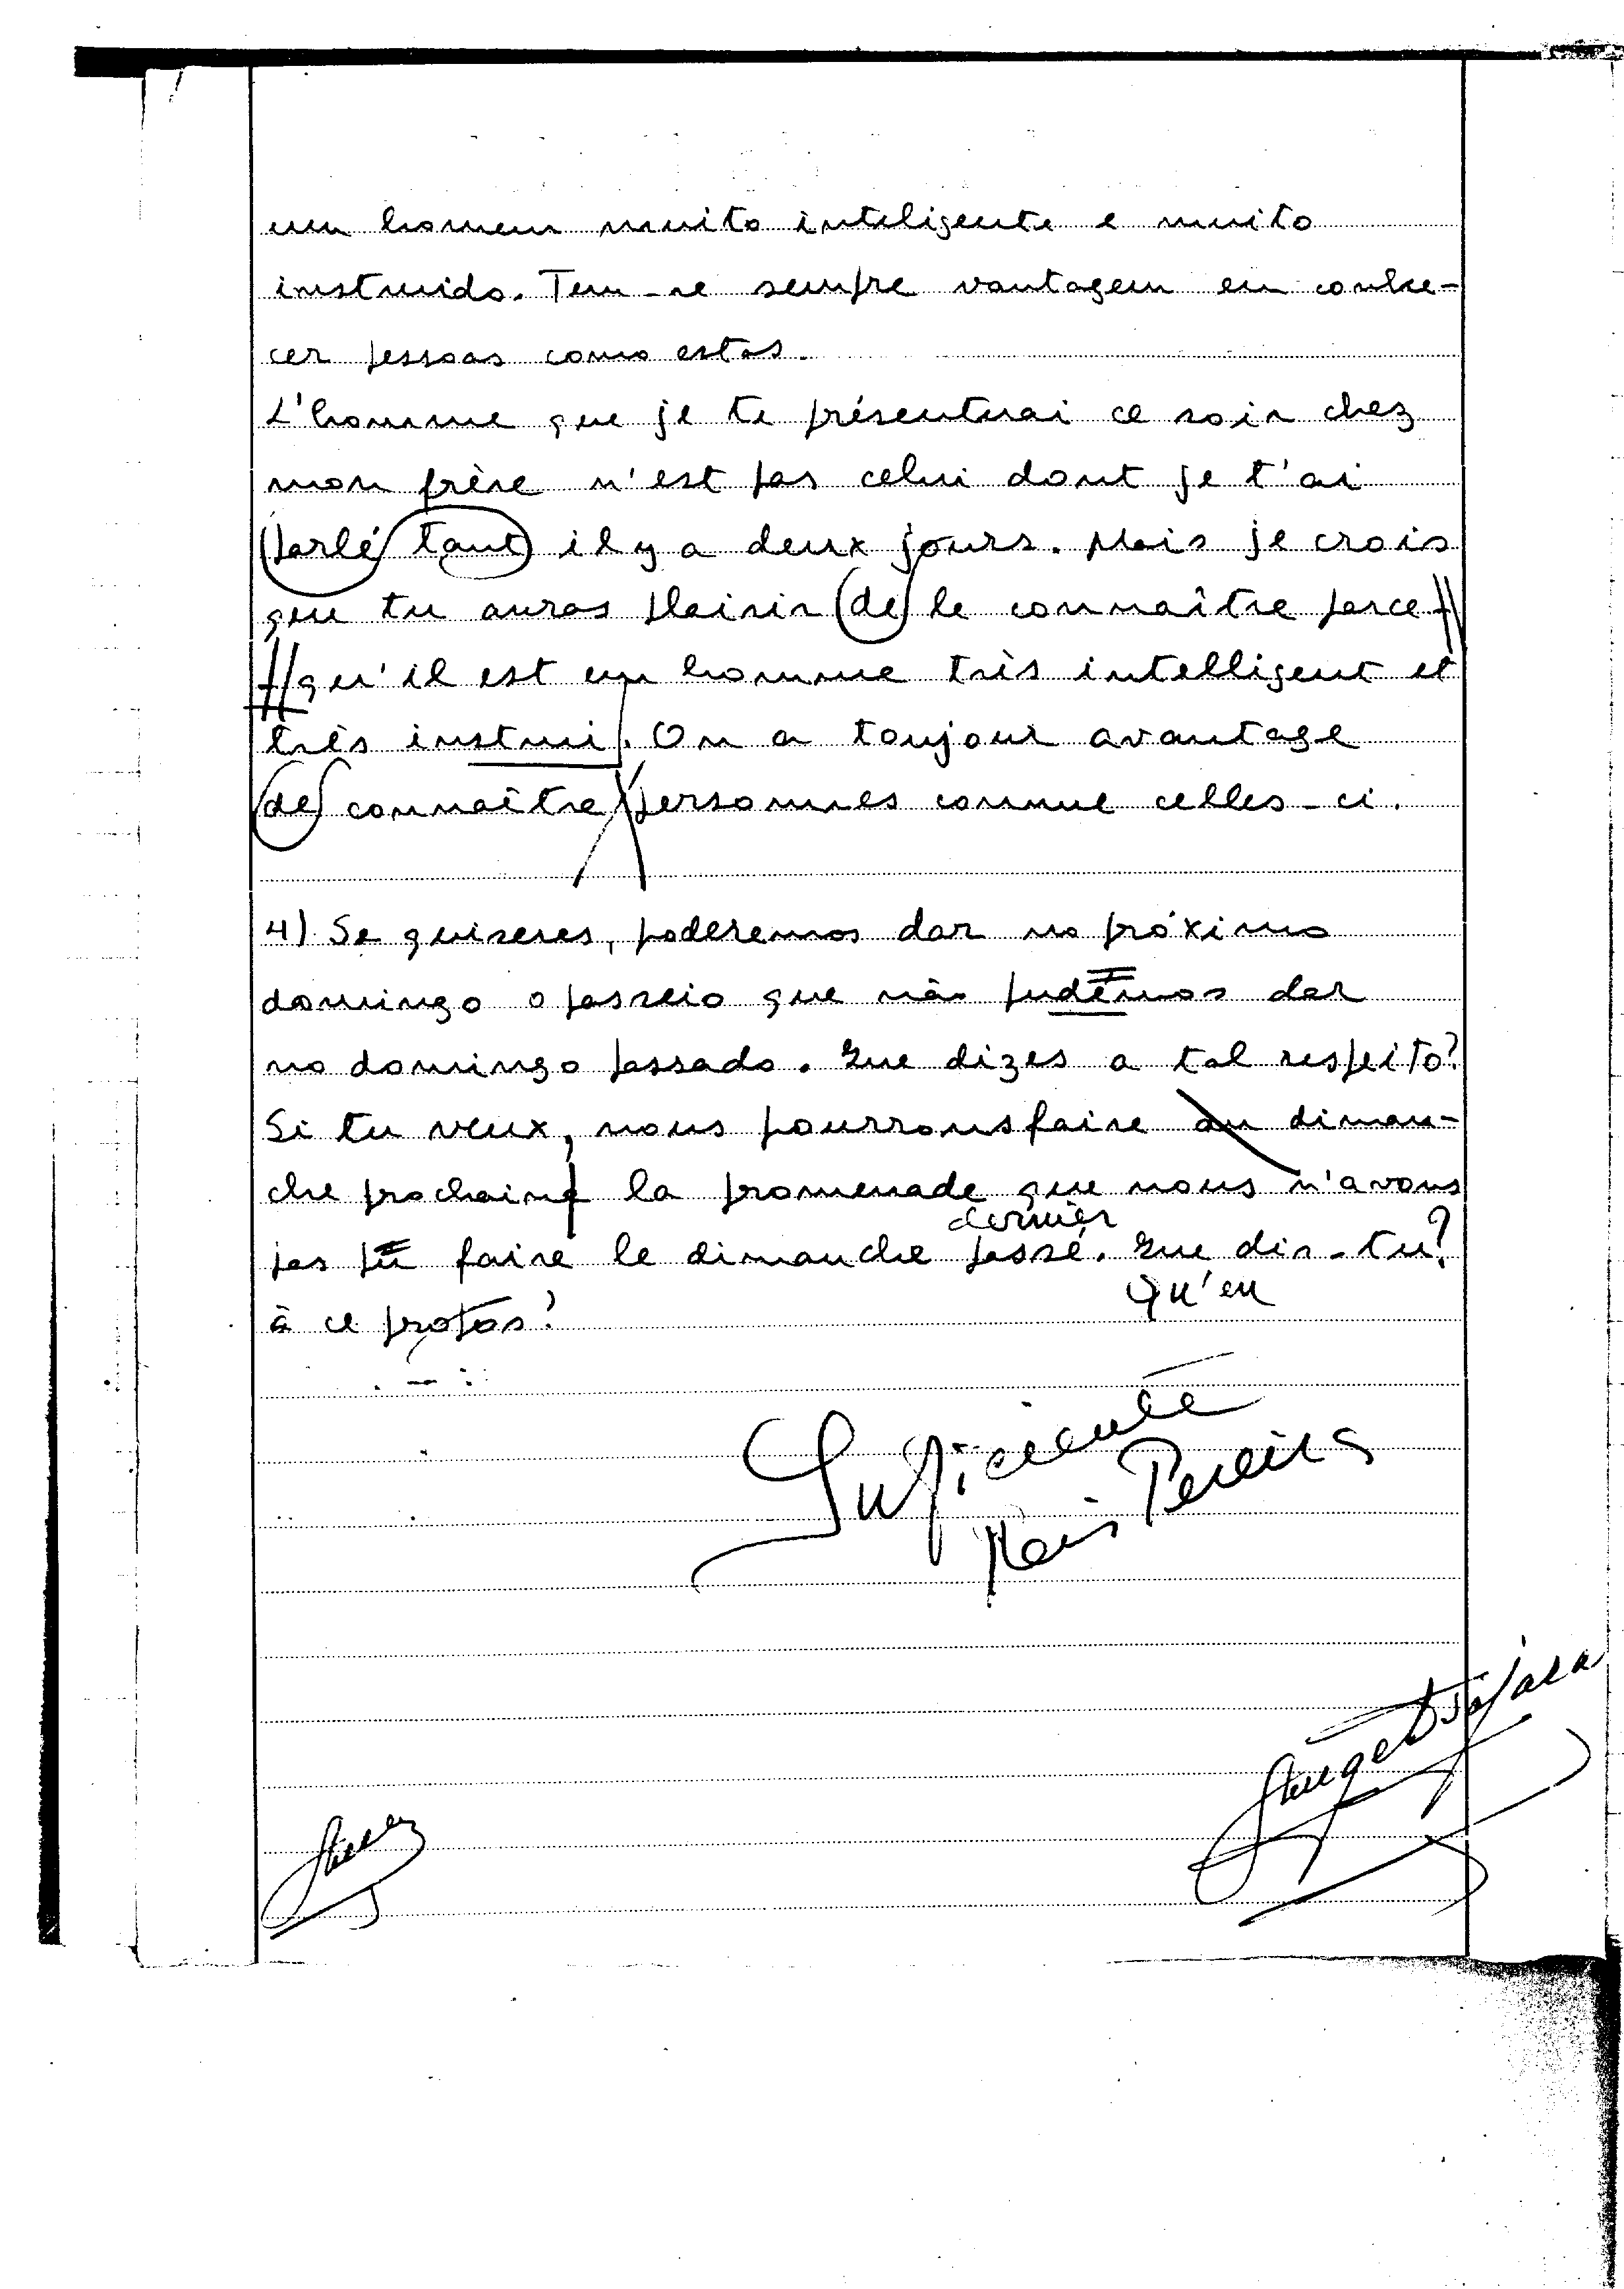 um homem muito inteligente e muito
instruido. Tem-se sempre vantagem em conhe-
cer pessoas como estas.
L'homme que je te présenterai ce soir chez
mon frère n'est pas celui dont je t'ai
parlé tant il y a deux jours. Mais je crois
que tu auras plaisir de le connaître parce-
-qu'il est un homme très intelligent et
très instrui. On a toujour avantage
de connaître personnes comme celles-ci.
4) Se quiseres, poderemos dar no próximo
domingo o passeio que não pudémos dar
no domingo passado. Que dizes a tal respeito?
Si tu veux, nous pourrons faire au diman-
che prochaine la promenade que nous n'avons
dernier
pas pû faire le dimanche passé. Que dis-tu?
Qu'en
à ce propos?
Suficiente
Reis Pereira